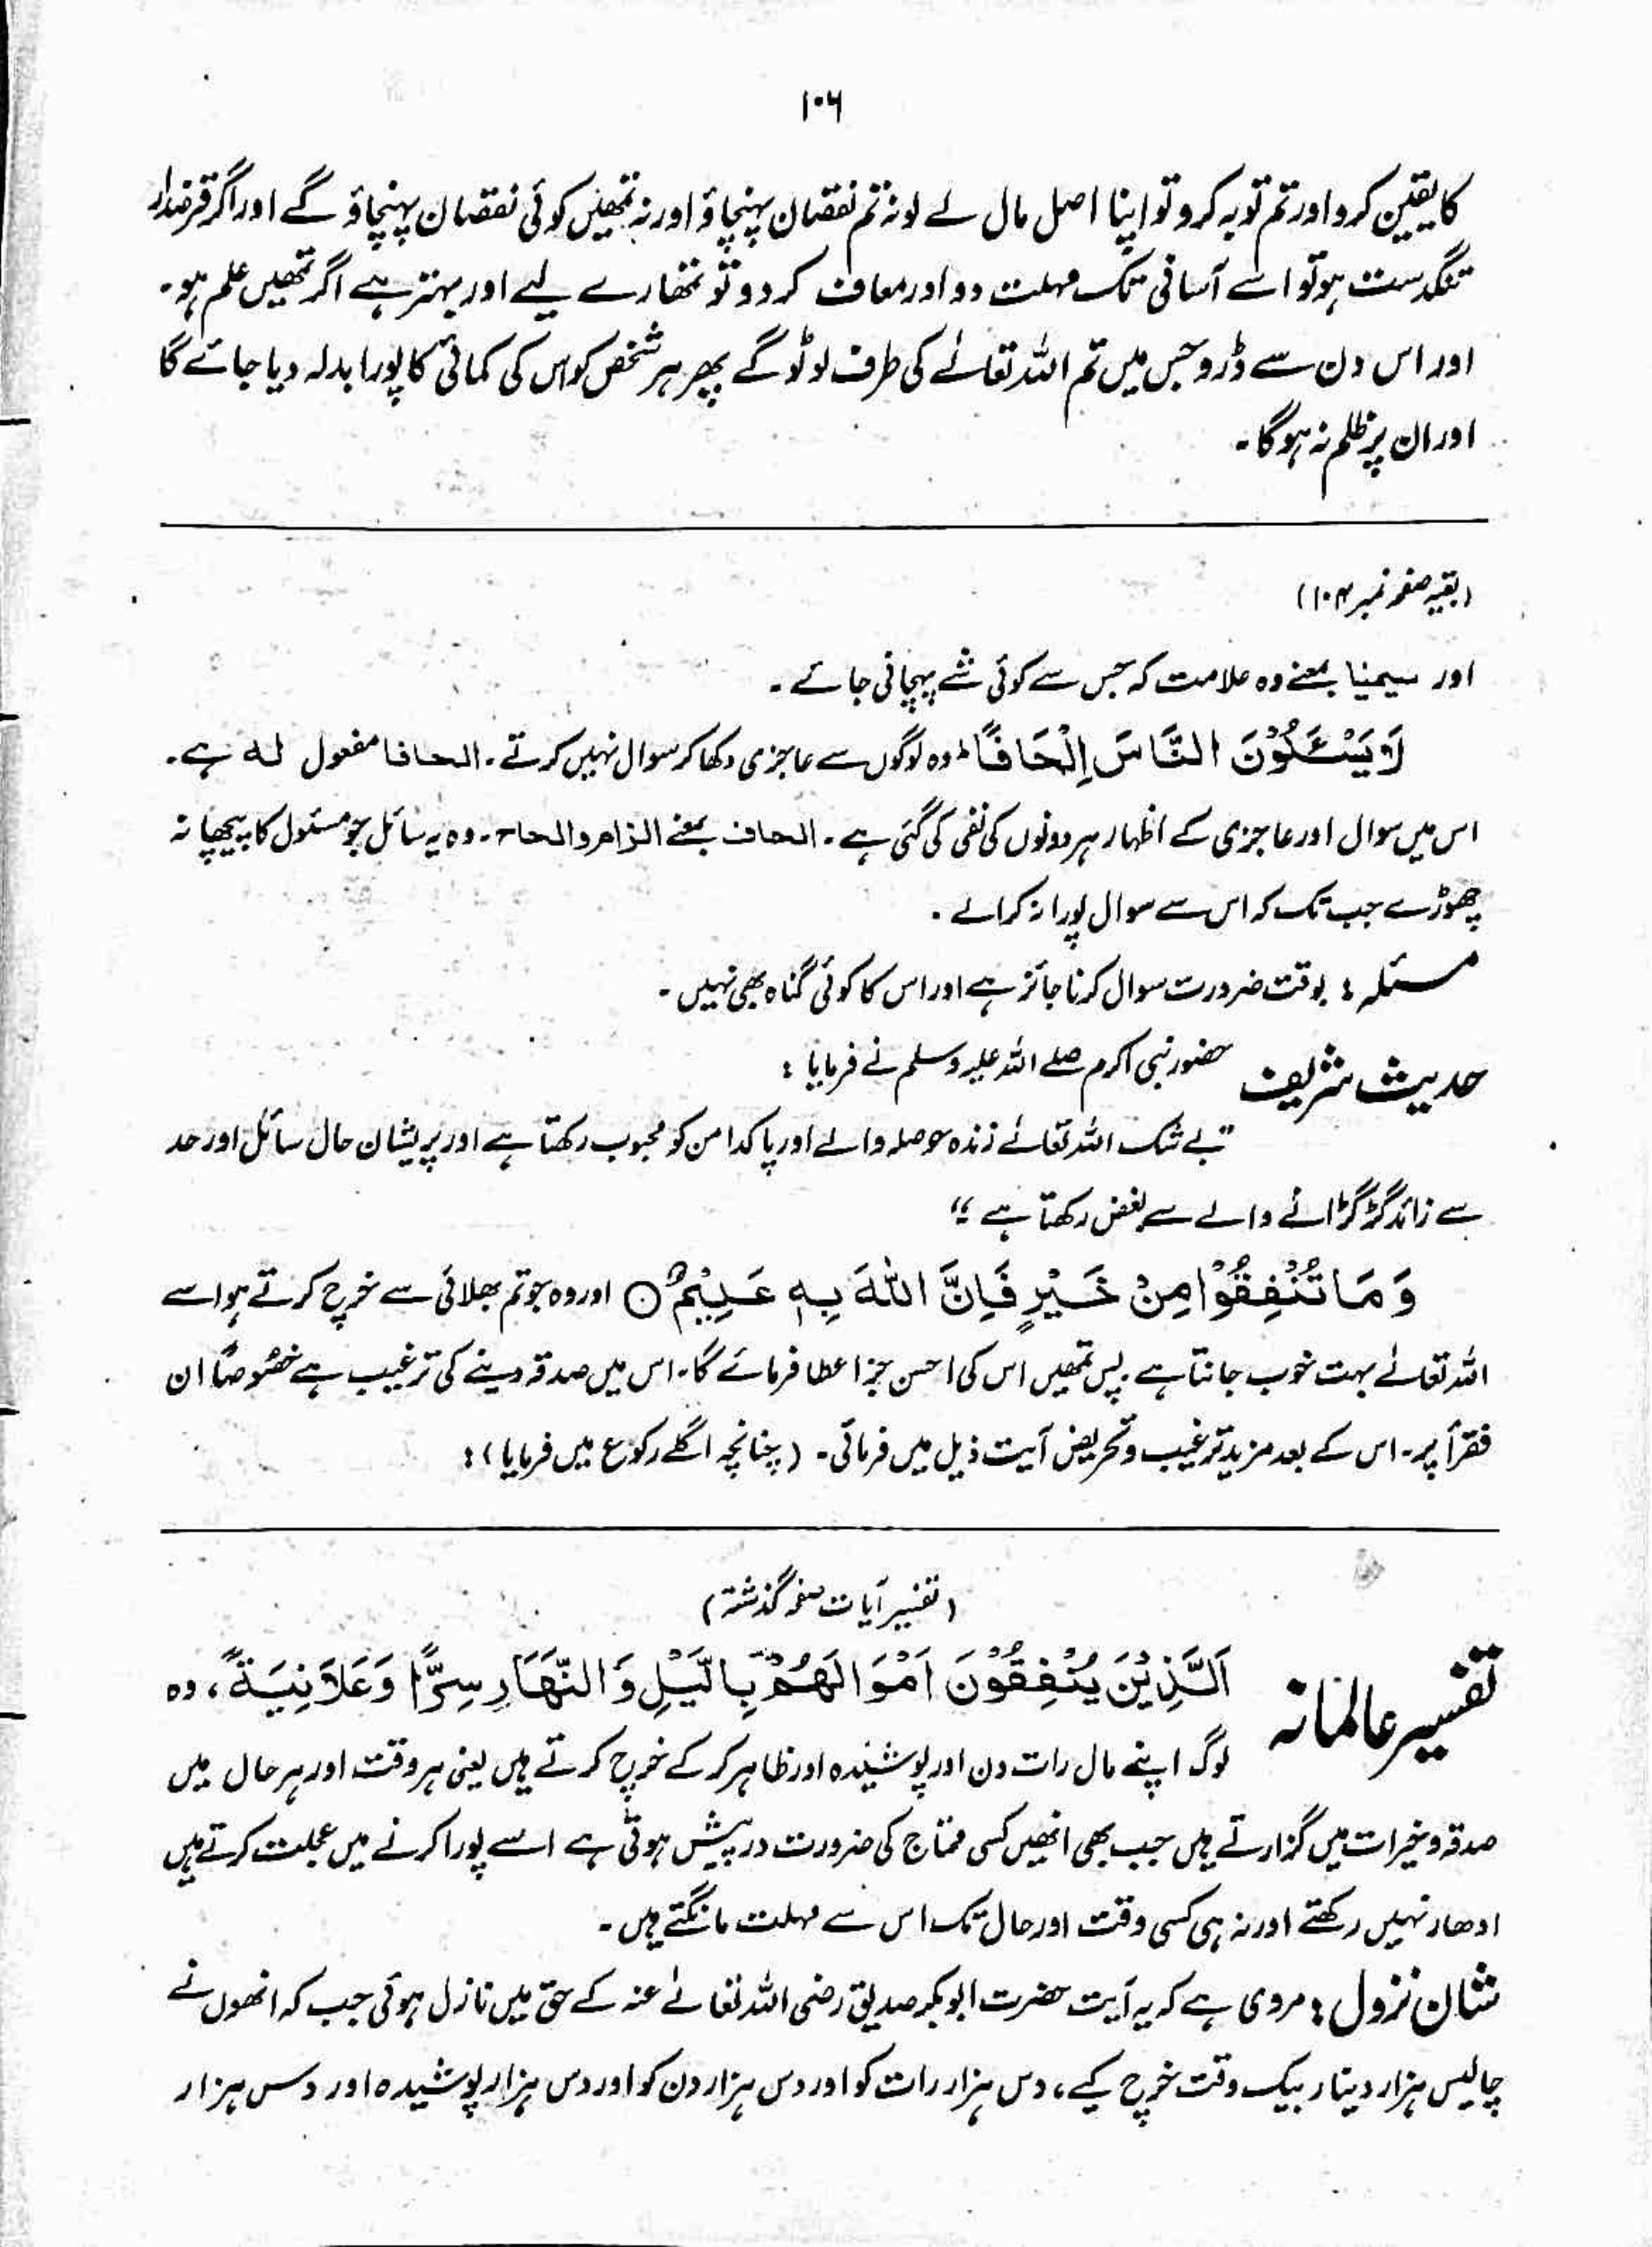 ۱۰۶
کا یقین کرو اور تم توبہ کرو تو اپنا اصل مال لے لو نہ تم نقصان پہنچاؤ اور نہ تمھیں کوئی نقصان پہنچاؤ گے اور اگر قرضدار
تنگدست ہو تو اسے آسانی تک مہلت دو اور معاف کر دو تو تمھارے لیے اور بہتر ہے اگر تمھیں علم ہو۔
اور اس دن سے ڈرو جس میں تم اللہ تعالےٰ کی طرف لوٹو گے پھر ہر شخص کو اس کی کمائی کا پورا بدلہ دیا جائے گا
اور ان پر ظلم نہ ہو گا۔
(بقیہ صفحہ نمبر ۱۰۴)
اور سیمیا بمعنے وہ علامت کہ جس سے کوئی شے پہچانی جائے۔
لَا یَسْئَلُوْنَ النَّاسَ اِلْحَافًا ؕ وہ لوگوں سے عاجزی دکھا کر سوال نہیں کرتے۔ الحافا مفعول لہ ہے۔
اس میں سوال اور عاجزی کے اظہار ہر دونوں کی نفی کی گئی ہے۔ الحاف بمعنے الزام والحاح۔ وہ یہ سائل جو مسئول کا پیچھا نہ
چھوڑے جب تک کہ اس سے سوال پورا نہ کرالے۔
مسئلہ : بوقت ضرورت سوال کرنا جائز ہے اور اس کا کوئی گناہ بھی نہیں۔
حدیث شریف حضور نبی اکرم صلے اللہ علیہ وسلم نے فرمایا :
"بے شک اللہ تعالےٰ زندہ حوصلہ والے اور پاکدامن کو محبوب رکھتا ہے اور پریشان حال سائل اور حد
سے زائد گڑگڑانے والے سے بغض رکھتا ہے"
وَ مَا تُنْفِقُوْا مِنْ خَیْرٍ فَاِنَّ اللّٰہَ بِہٖ عَلِیْمٌ ○ اور وہ جو تم بھلائی سے خرچ کرتے ہو اسے
اللہ تعالےٰ بہت خوب جانتا ہے پس تمھیں اس کی احسن جزا عطا فرمائے گا۔ اس میں صدقہ دینے کی ترغیب ہے خصُوصًا ان
فقرأ پر۔ اس کے بعد مزید ترغیب و تحریض آیت ذیل میں فرمائی۔ (چنانچہ اگلے رکوع میں فرمایا) :
(تفسیر آیات صفحہ گذشتہ)
تفسیر عالمانہ اَلَّذِیْنَ یُنْفِقُوْنَ اَمْوَالَھُمْ بِالَّیْلِ وَ النَّھَارِ سِرًّا وَّ عَلَانِیَۃً، وہ
لوگ اپنے مال رات دن اور پوشیدہ اور ظاہر کر کے خرچ کرتے ہیں یعنی ہر وقت اور ہر حال میں
صدقہ و خیرات میں گزارتے ہیں جب بھی انھیں کسی محتاج کی ضرورت درپیش ہوتی ہے اسے پورا کرنے میں عجلت کرتے ہیں
ادھار نہیں رکھتے اور نہ ہی کسی وقت اور حال تک اس سے مہلت مانگتے ہیں۔
شان نزول : مروی ہے کہ یہ آیت حضرت ابوبکر صدیق رضی اللہ تعالےٰ عنہ کے حق میں نازل ہوئی جب کہ انھوں نے
چالیس ہزار دینار بیک وقت خرچ کیے، دس ہزار رات کو اور دس ہزار دن کو اور دس ہزار پوشیدہ اور دس ہزار